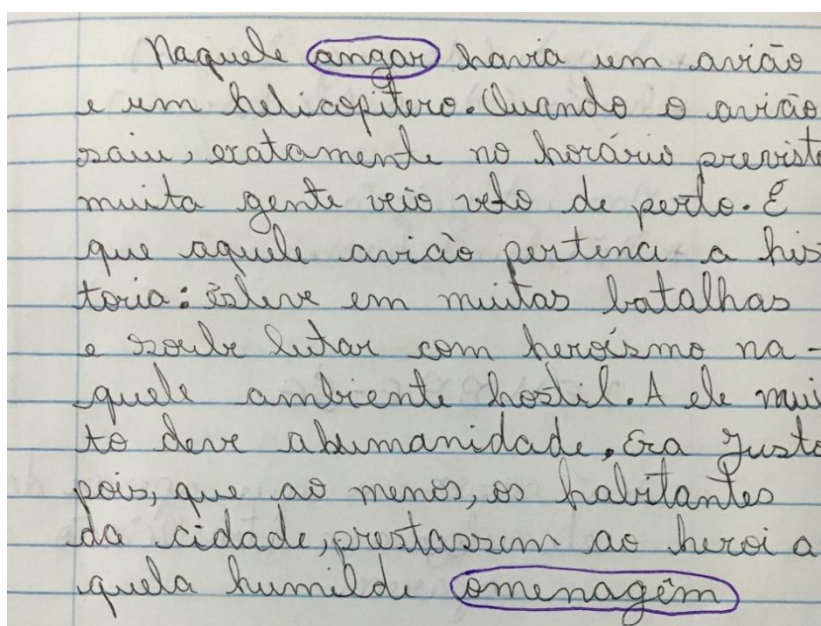 Naquele angar havia um avião
e um helicopitero. Quando o avião
saiu, exatamente no horário previsto
muita gente veio velo de perto. É
que aquele avião pertenci a his
toria: esteve em muitas batalhas
e soube lutar com heroísmo na-
quele ambiente hostil. A ele mui
to deve ahumanidade. Era justo
pois, que ao menos, os habitantes
da cidade, prestassem ao heroi a
quela humilde omenagêm